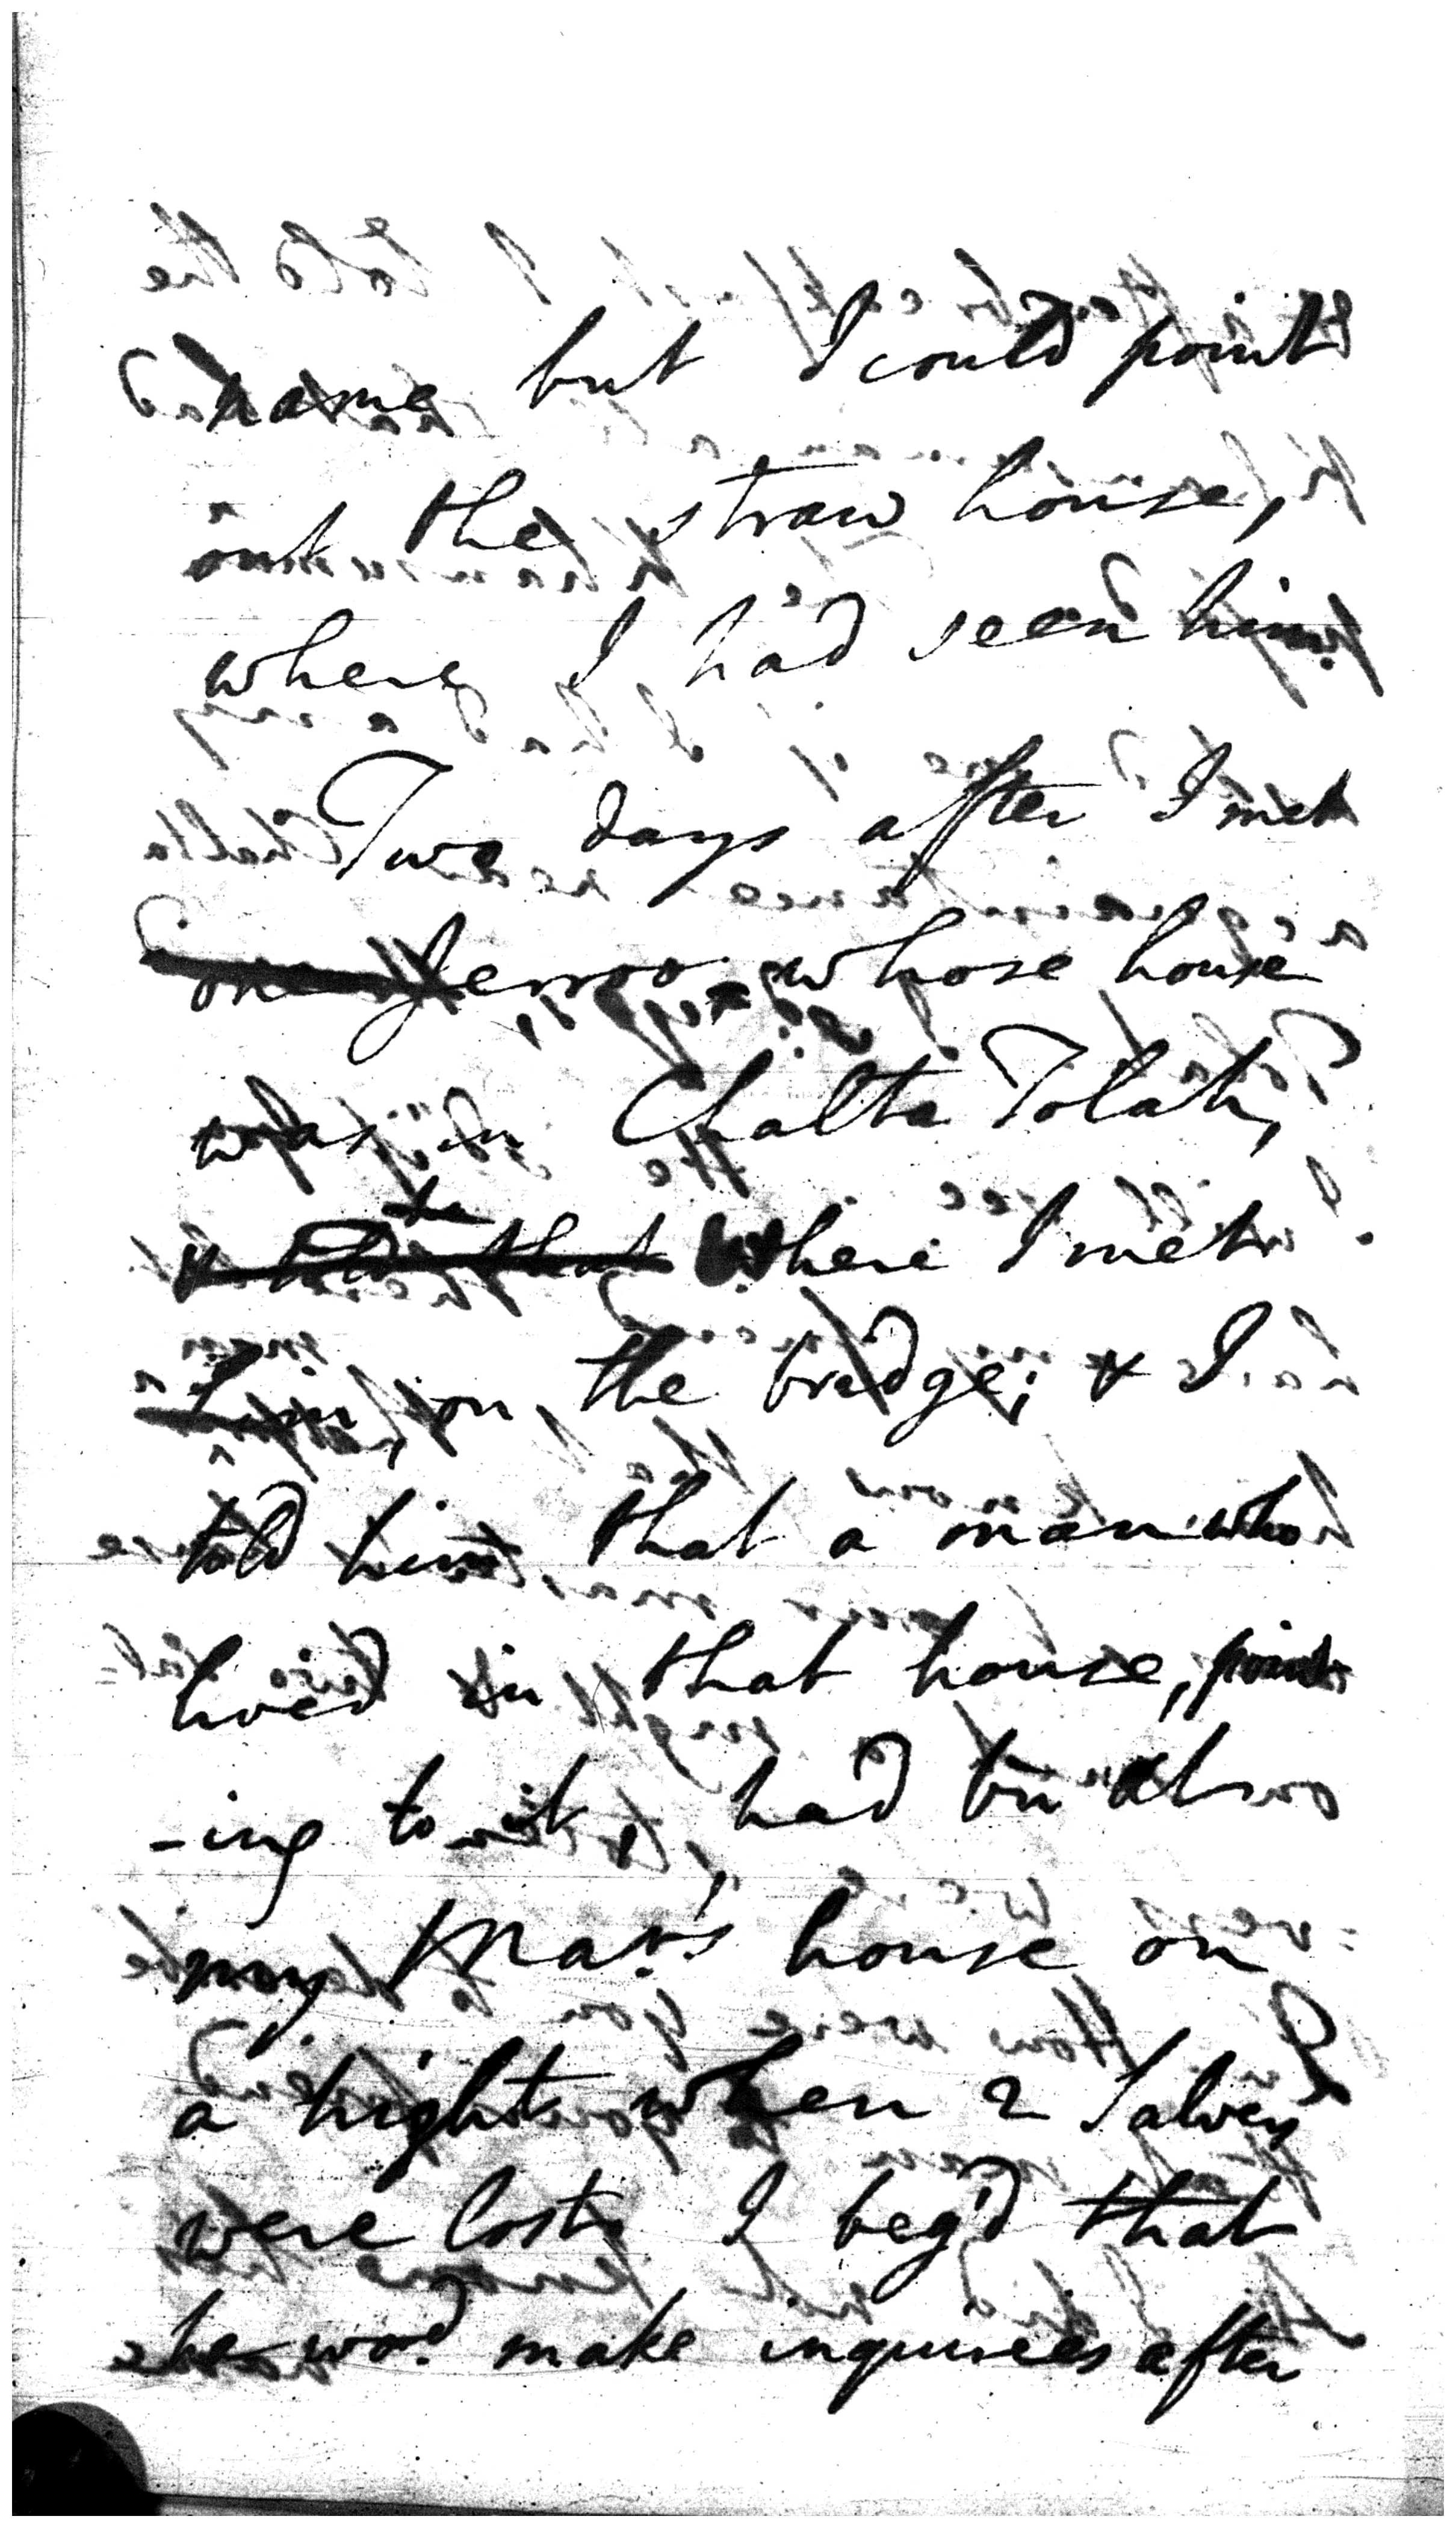 name but I could point
out the straw house,
where I had seen him.
Two days after I met
one Jerroo whose house
was in Chalta Tolah,
& told that where I met
him, on the bridge; & I
told him that a man who
lived in that house, point
-ing to it, had been also
my Mas.rs house on
a night when 2 Salvers
were lost, I beg'd that
he wo.d make inquiries after